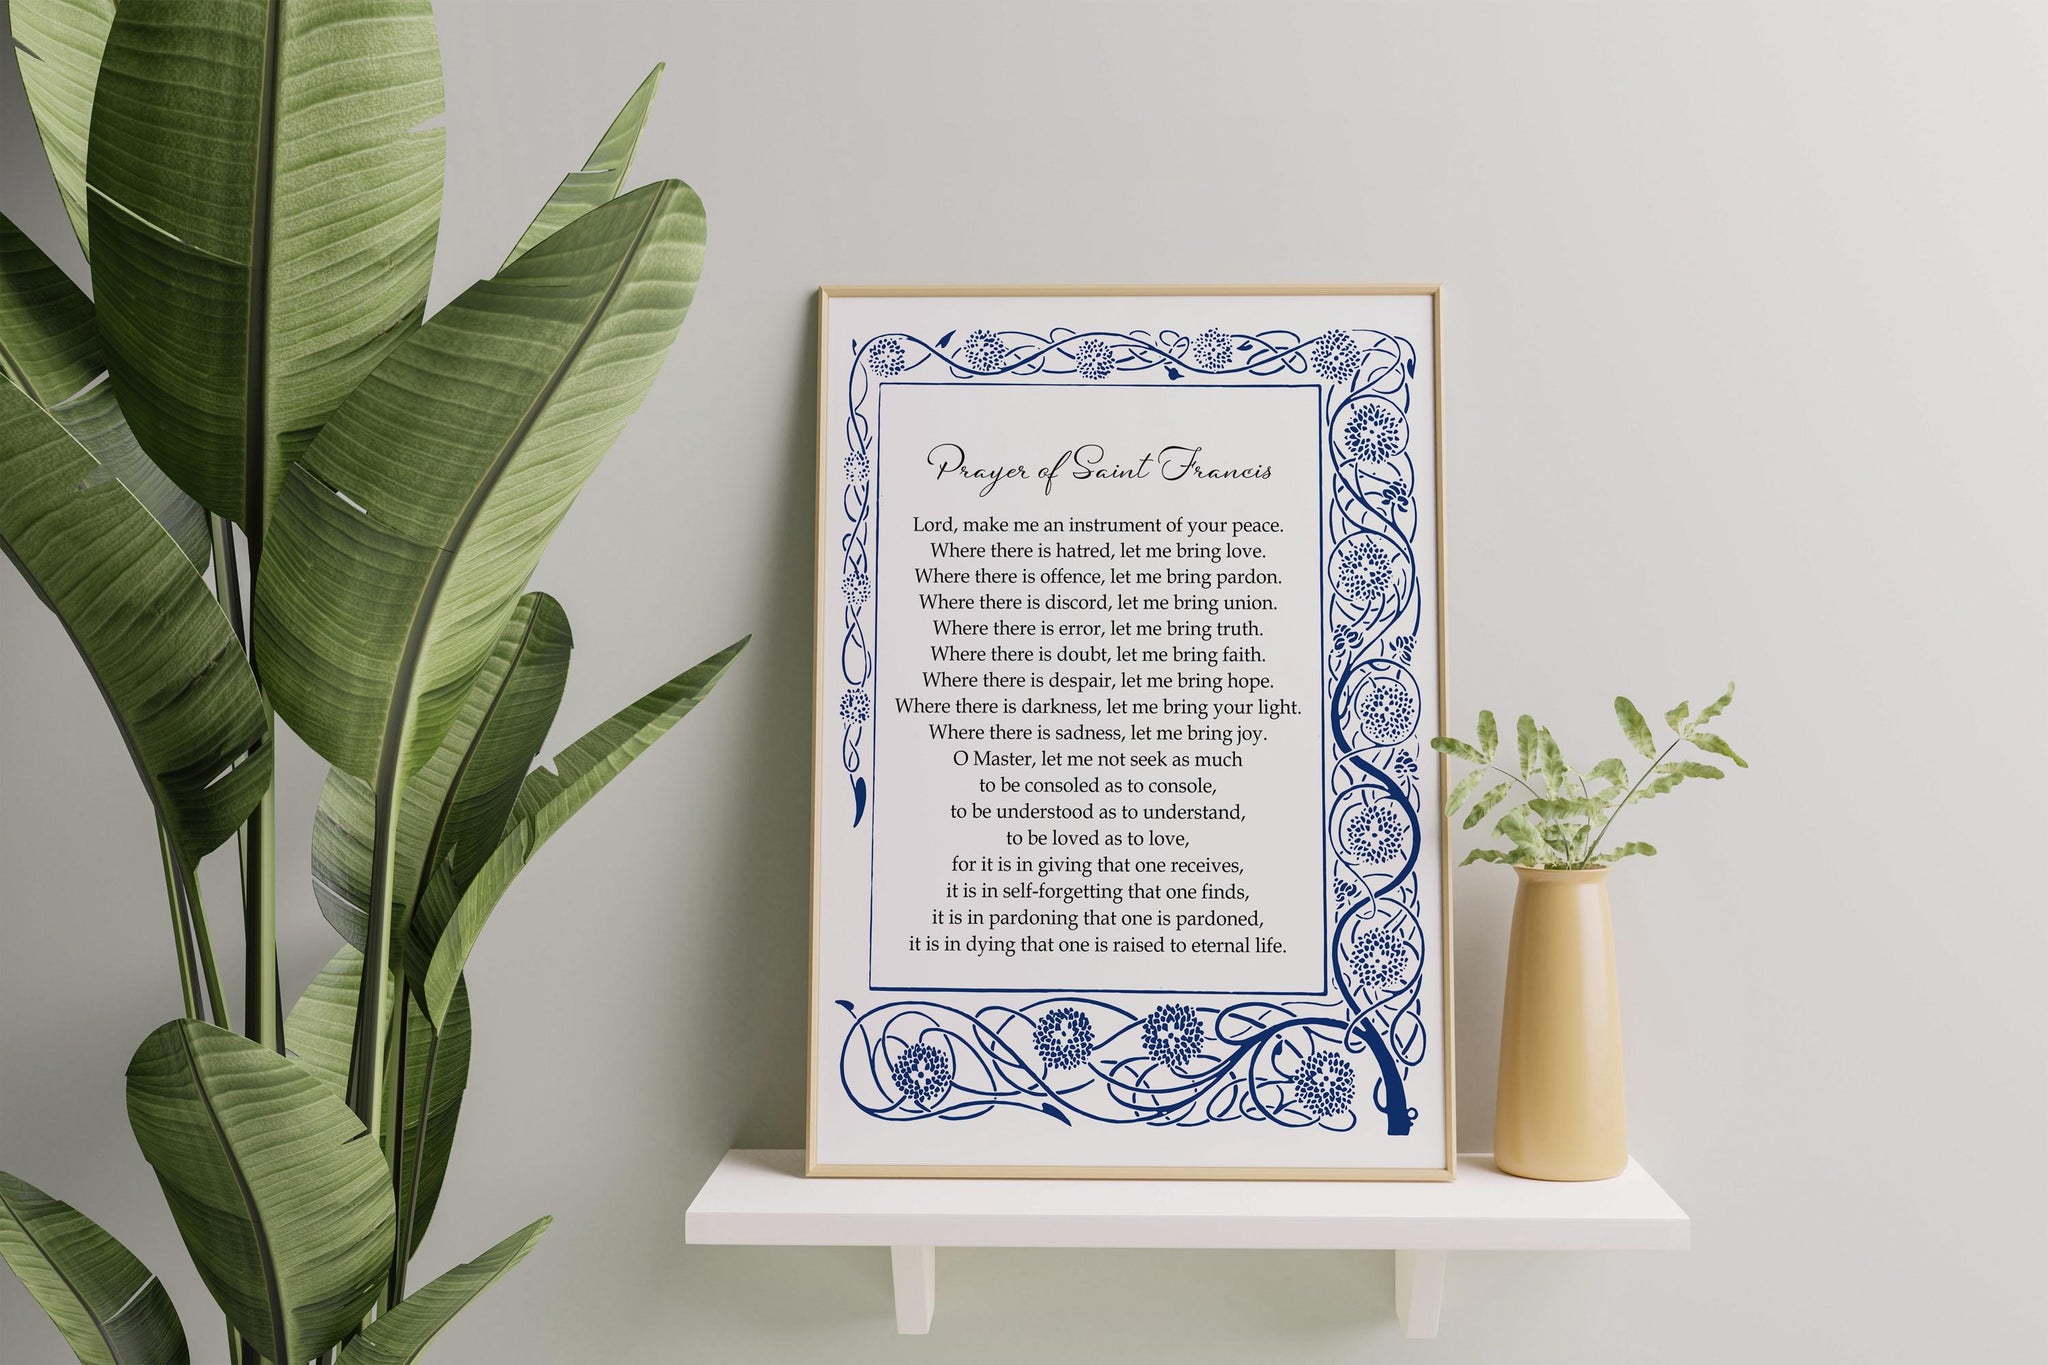 Prayer of Saint Francis
Lord, make me an instrument of your peace.
Where there is hatred, let me bring love.
Where there is offence, let me bring pardon.
Where there is discord, let me bring union.
Where there is error, let me bring truth.
Where there is doubt, let me bring faith.
Where there is despair, let me bring hope.
Where there is darkness, let me bring your light.
Where there is sadness, let me bring joy.
O Master, let me not seek as much
to be consoled as to console,
to be understood as to understand,
to be loved as to love,
for it is in giving that one receives,
it is in self-forgetting that one finds,
it is in pardoning that one is pardoned,
it is in dying that one is raised to eternal life.